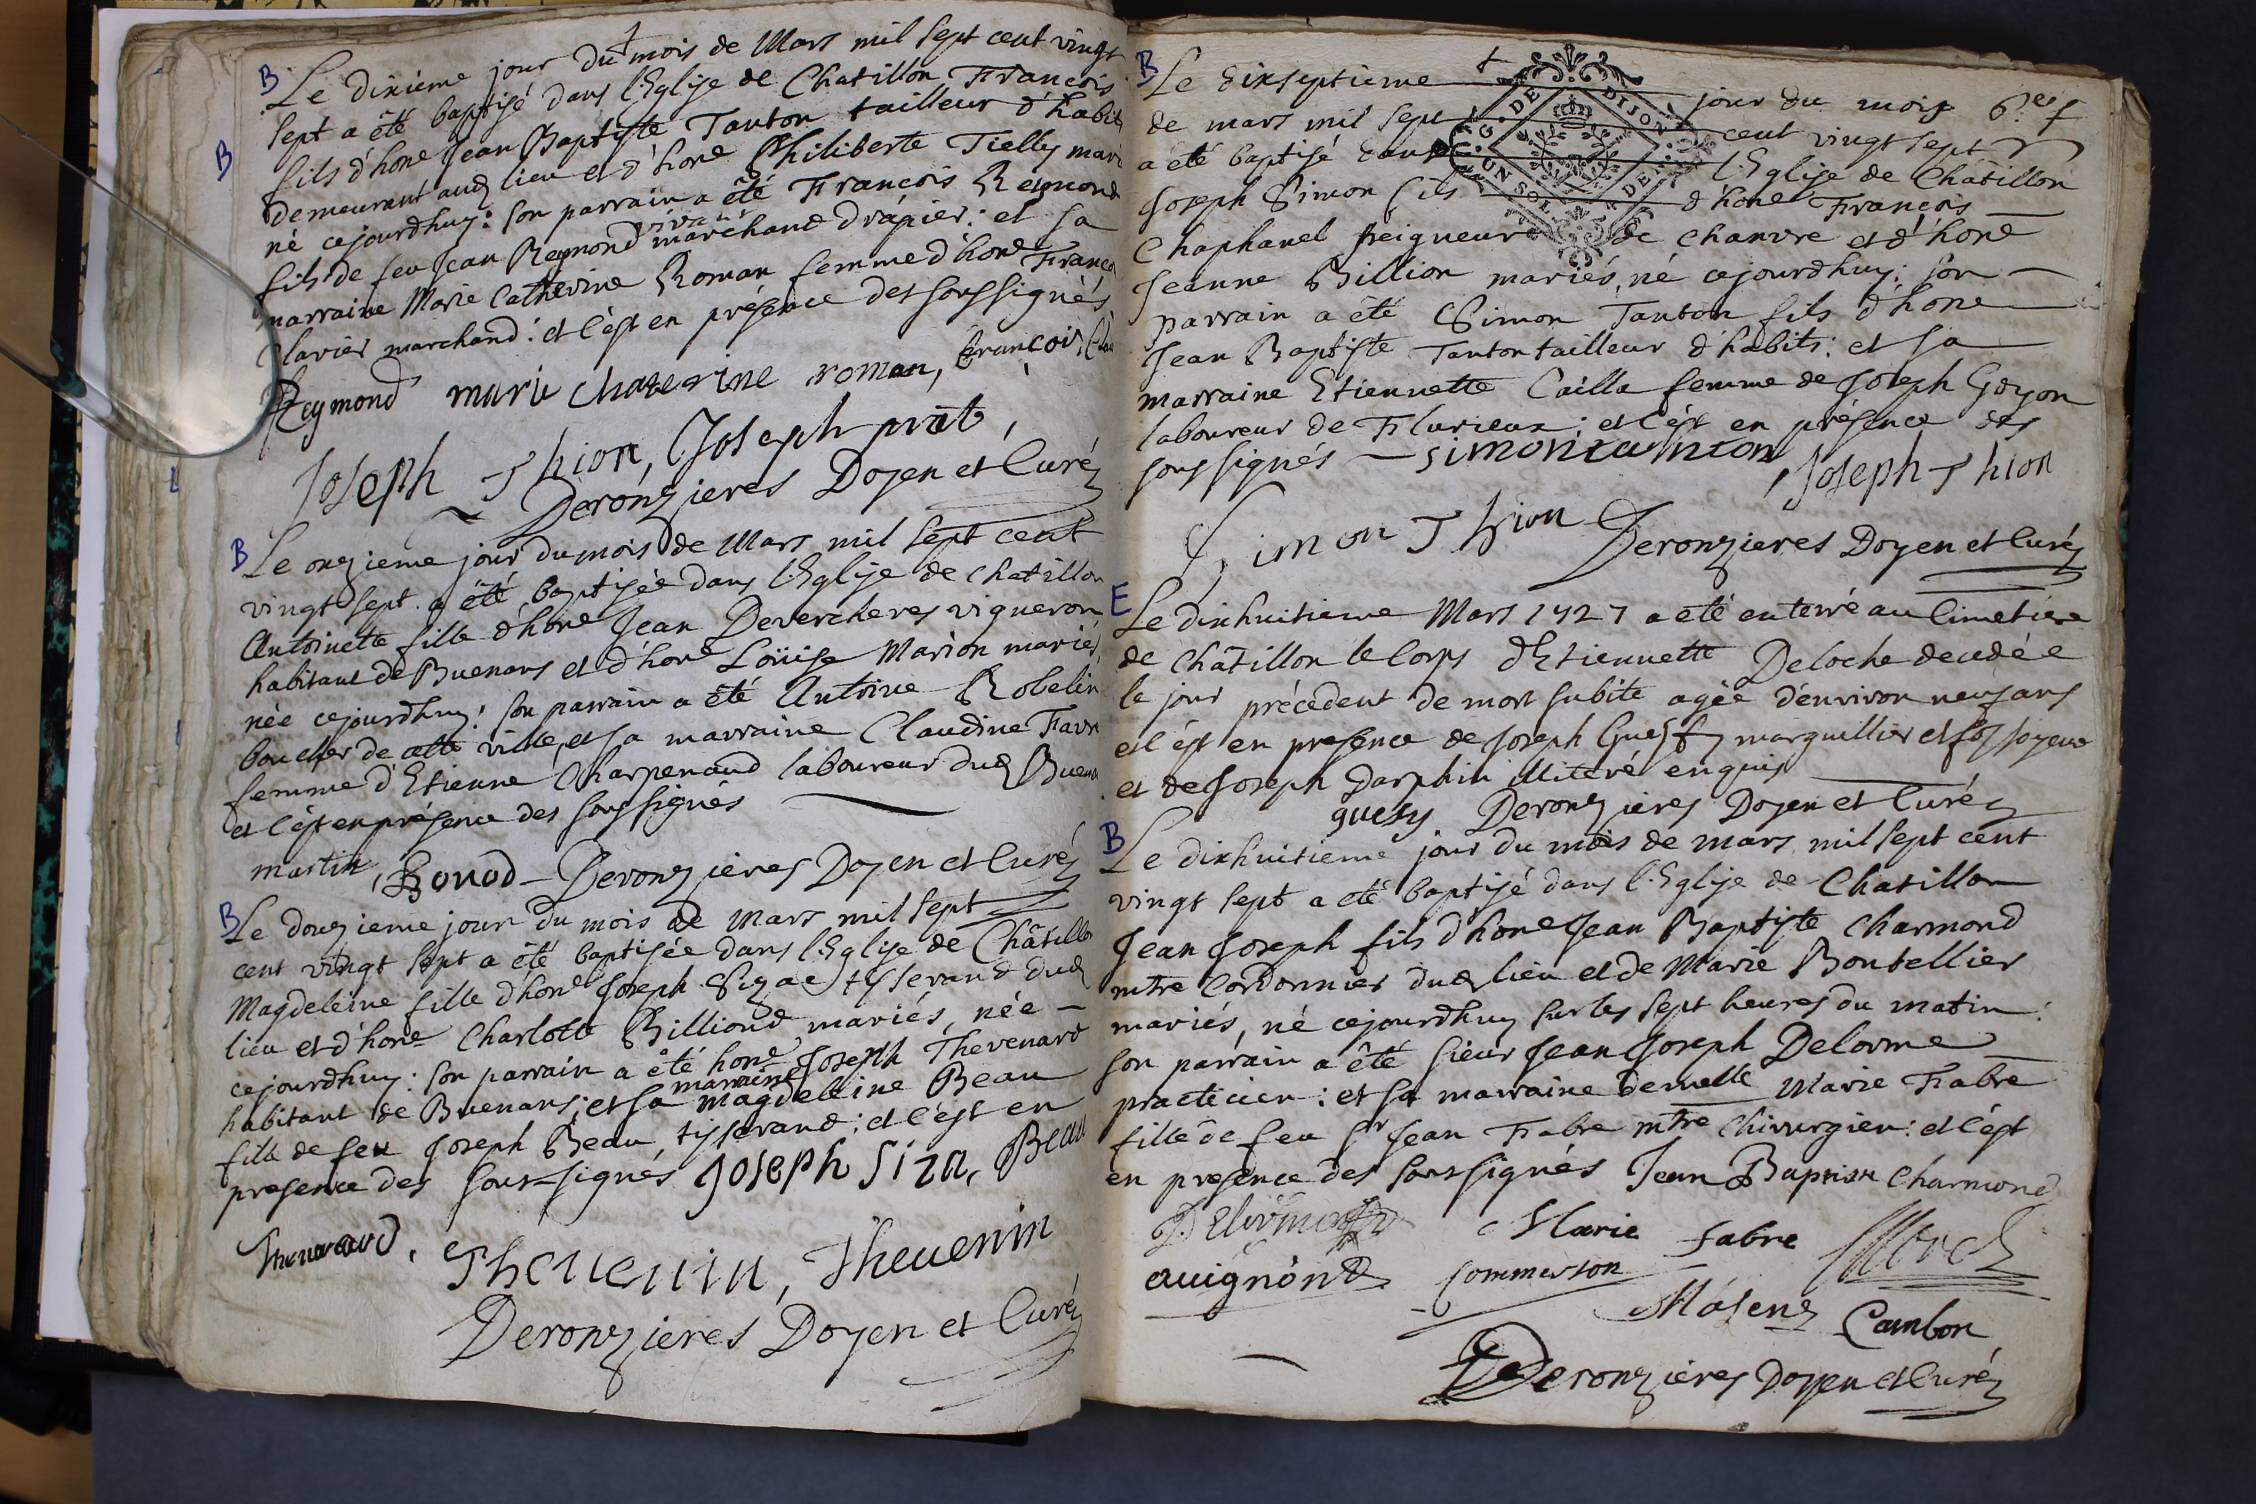 B Le dixième jour du mois de Mars mil sept cent vingt
sept a été baptisé dans l'Eglise de Chatillon François
B fils d'hone Jean Baptiste Tanton tailleur d'habit
demeurant aud lieu et d'hone Philiberte Tielly mari
né cejourdhuy: son parrain a été François Reymond
fils de feu Jean Reymond vivant marchand drapier: et sa
marraine Marie Catherine Roman femme d'hone Franço
Clavier marchand: et c'est en présence des soussignés
Reymond marie chaterine roman, françois, Cla
Joseph Thion, Joseph prat,
Deronzieres Doyen et Curé
B Le onzieme jour du mois de Mars mil sept cent
vingt sept a été baptisée dans l'Eglise de Chatillon
Antoinette fille d'hone Jean Devercheres vigneron
habitant de Buenans et d'hone Loüise Marion mariés,
née cejourdhuy: son parrain a été Antoine Robelin
boucher de cette ville, et sa marraine Claudine Favr
femme d'Etienne Charpenaud laboureur dud Buena
et c'est en présence des soussignés
martin, Bonod Deronzières Doyen et Curé
B Le douzieme jour du mois de Mars mil sept
cent vingt sept a été baptisée dans l'Eglise de Châtillo
Magdeleine fille d'hone Joseph Sizac tysserand dud
lieu et d'hone Charlotte Billiond mariés, née
cejourdhuy: son parrain a été hone Joseph Thevenard
habitant de Buenans; et sa marraine Magdeleine Beau
fille de feu Joseph Beau tysserand: et c'est en
presence des sous-signés Joseph Siza, Beau
Thevenard, Thevenin, Thevenin
Deronzieres Doyen et Curé
B Le dixseptieme jour du mois 6.e f
de mars mil sept cent vingt sept
a été baptisé dans l'Eglise de Châtillon
Joseph Simon fils d'hone François
Chaphanel peigneur de chanvre et d'hone
Jeanne Billion mariés, né cejourdhuy: son
parrain a été Simon Tanton fils d'hone
Jean Baptiste Tanton tailleur d'habits: et sa
marraine Etiennette Cailla femme de Joseph Goyon
laboureur de Flurieux: et c'est en présence des
soussignés simon tanton, Joseph Thion
Simon Thion Deronzieres Doyen et Curé
E Le dixhuitieme Mars 1727 a été enterré au Cimetiere
de Châtillon le Corps d'Etiennette Deloche decedée
le jour précedent de mort subite agée d'environ neuf ans
et c'est en presence de Joseph Guesy marguillier et fossoyeur
et de Joseph Darphin illiteré enquis
guesy Deronzieres Doyen et Curé
B Le dixhuitieme jour du mois de mars mil sept cent
vingt sept a été baptisé dans l'Eglise de Chatillon
Jean Joseph fils d'hone Jean Baptiste Charmond
mtre Cordonnier dud lieu et de Marie Boutellier
mariés, né cejourdhuy sur les sept heures du matin:
son parrain a été sieur Jean Joseph Delorme
practicien: et sa marraine demelle Marie Fabre
fille de feu Sr Jean Fabre mtre Chirurgien: et c'est
en presence des soussignés Jean Baptiste Charmond
Delorme Marie fabre
avignon commerson
Cambon
Deronzieres Doyen et Curé
G. DE DIJON
UN SOL